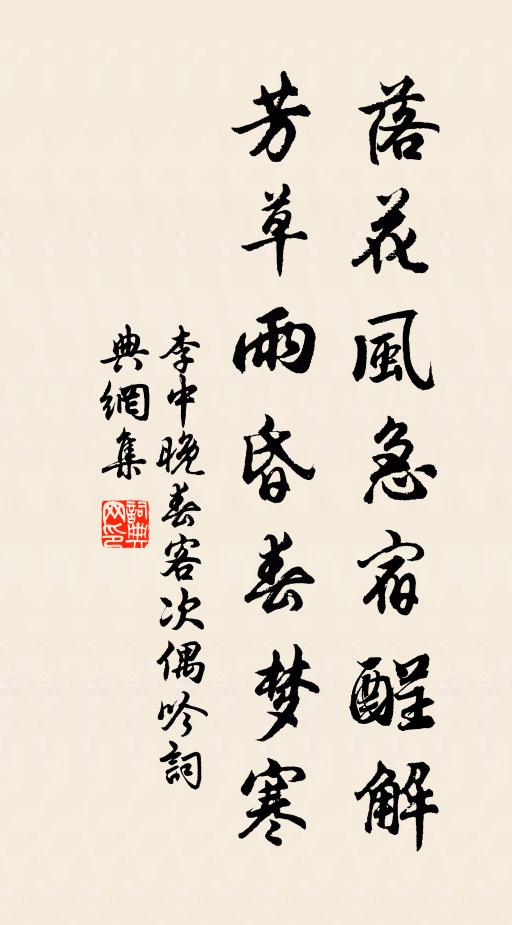 落花風急宿酲解
芳草雨昏春梦寒
李中晚春客次偶吟詞
典網集
詞典网印